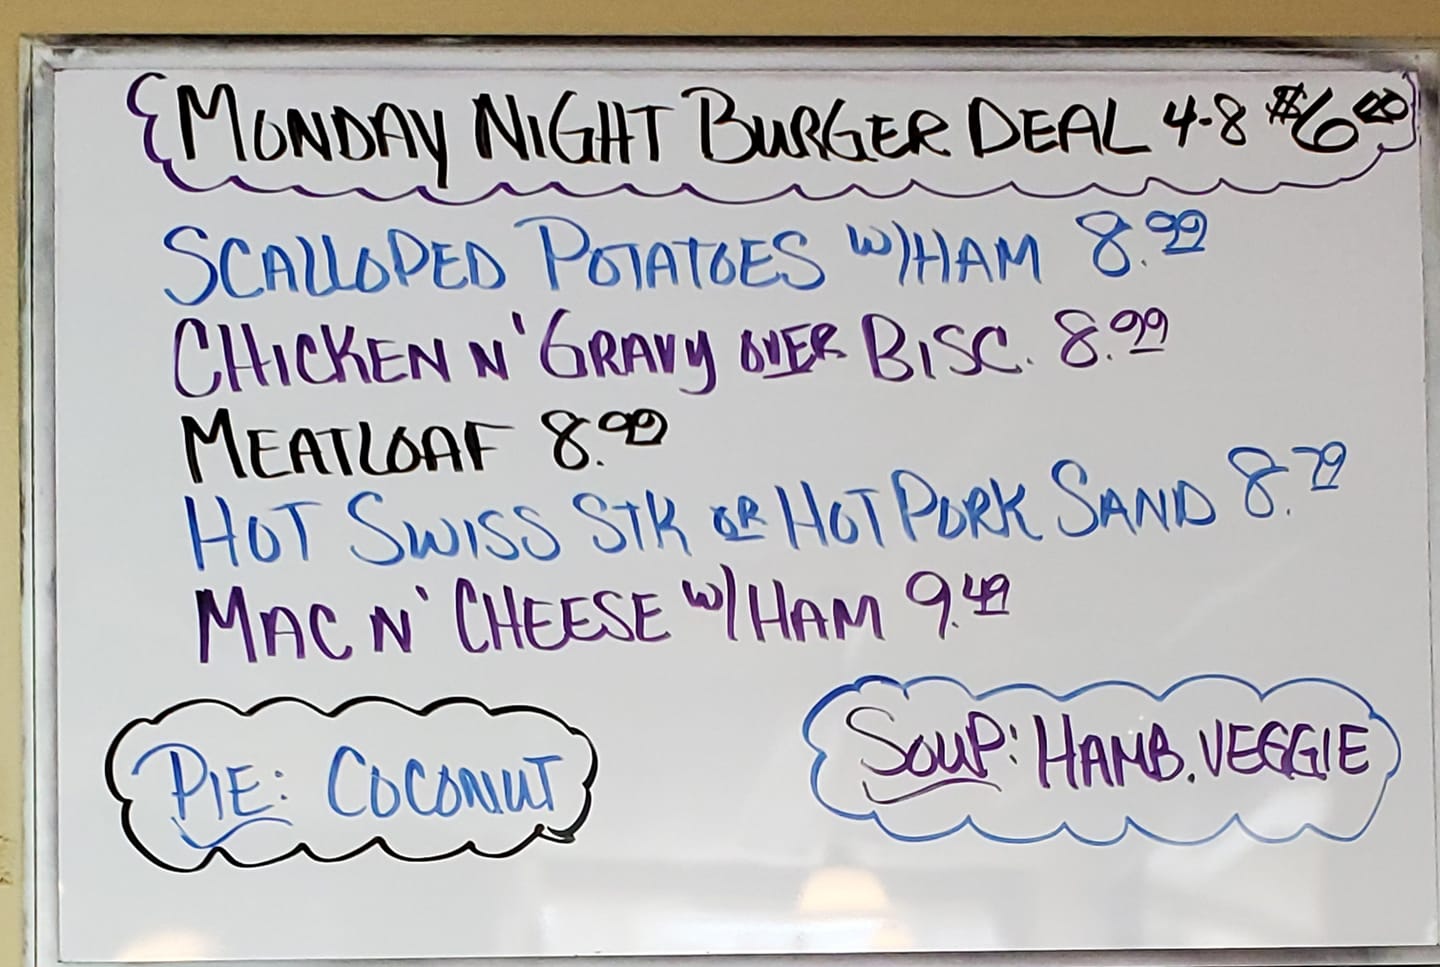 MONDAY NIGHT BURGER DEAL 4-8 $6.00
SCALLOPED POTATOES W/HAM 8.99
CHICKEN N' GRAVY OVER BISC. 8.99
MEATLOAF 8.99
HOT SWISS STK OR HOT PORK SAND 8.79
MAC N' CHEESE W/HAM 9.49
PIE: COCONUT
SOUP: HAMB. VEGGIE